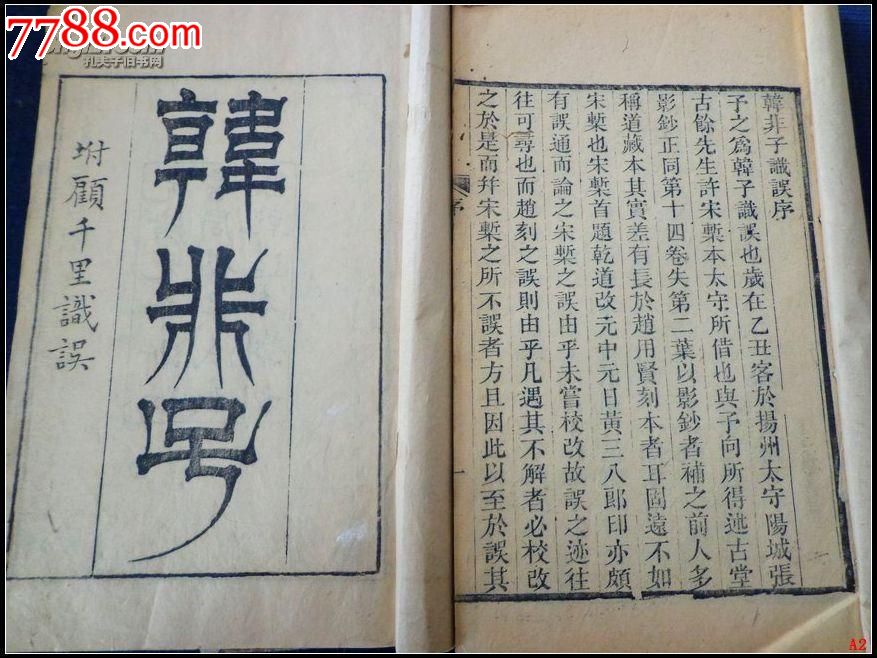 7788.com
孔夫子旧书网
韓非子
坿顧千里識誤
韓非子識誤序
予之為韓子識誤也歲在乙丑客於揚州太守陽城張
古餘先生許宋槧本太守所借也與予向所得述古堂
影鈔正同第十四卷失第二葉以影鈔者補之前人多
稱道藏本其實差有長於趙用賢刻本者耳固遠不如
宋槧也宋槧首題乾道改元中元日黃三八郎印亦頗
有誤通而論之宋槧之誤由乎未嘗校改故誤之迹往
往可尋也而趙刻之誤則由乎凡遇其不解者必校改
之於是而幷宋槧之所不誤者方且因此以至於誤其
序
一
A2